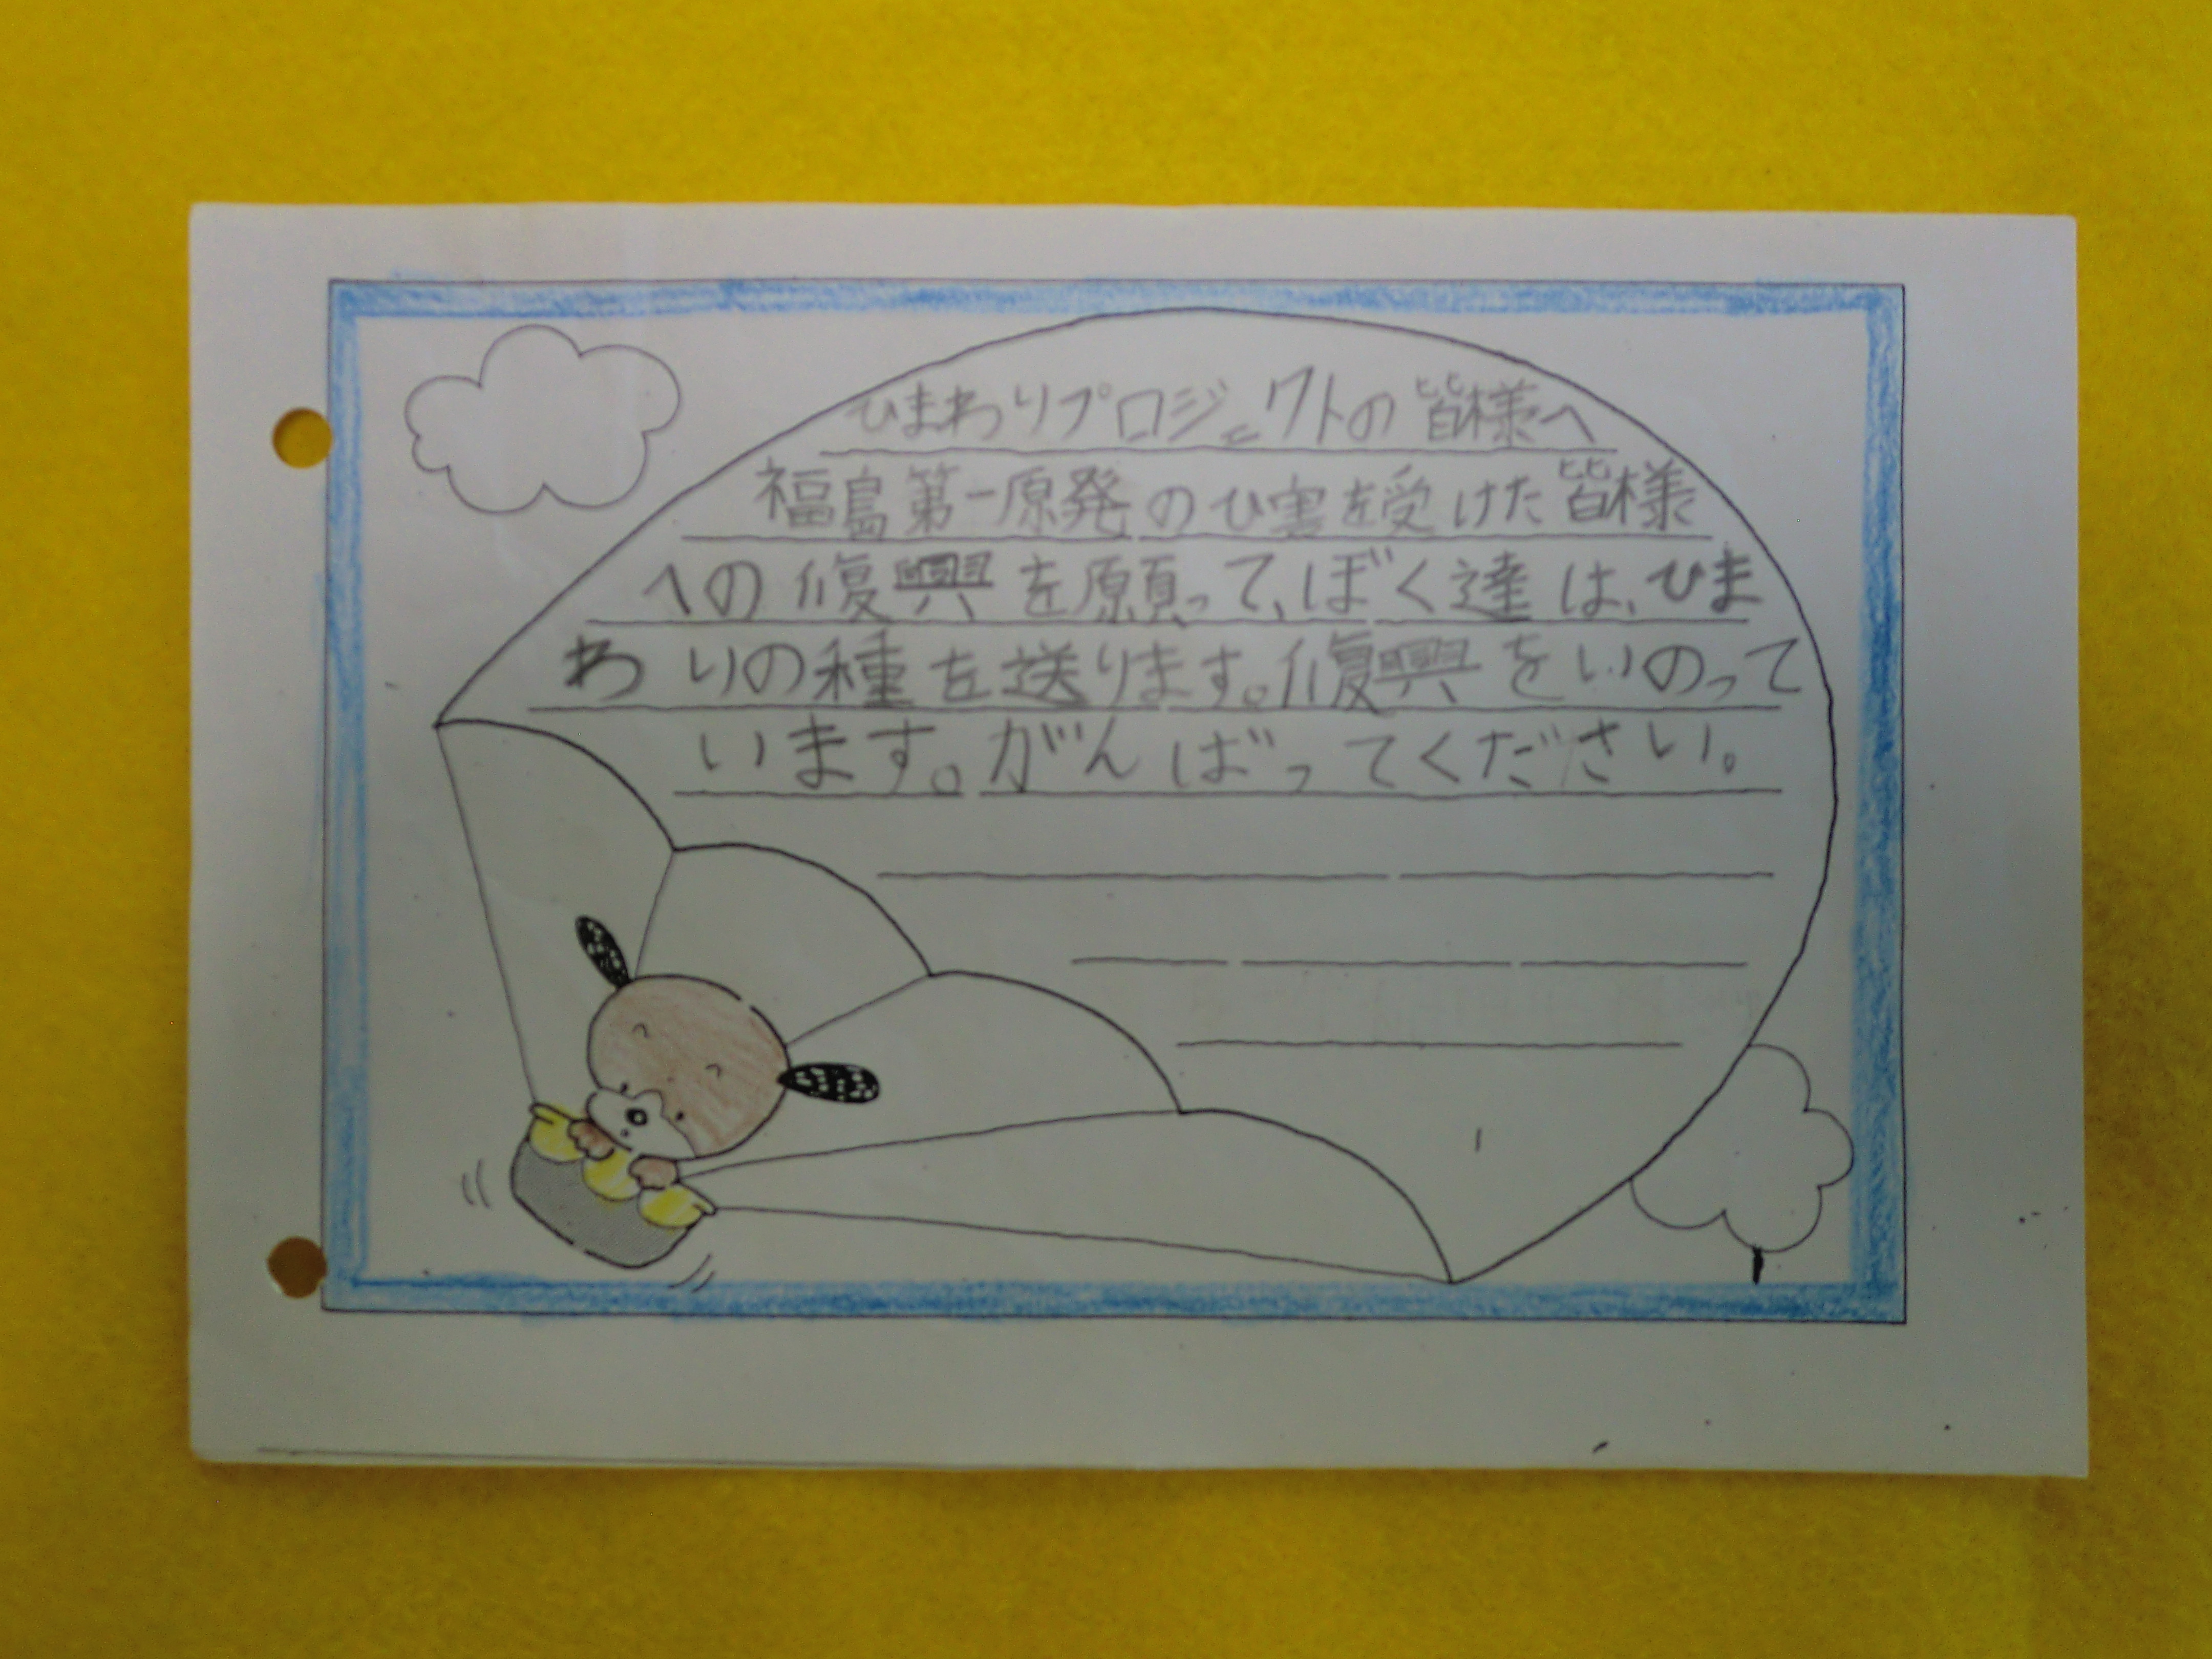 ひまわりプロジェクトの皆様へ
福島第一原発のひ害を受けた皆様
への復興を願って、ぼく達は、ひま
わりの種を送ります。復興をいのって
います。がんばってください。